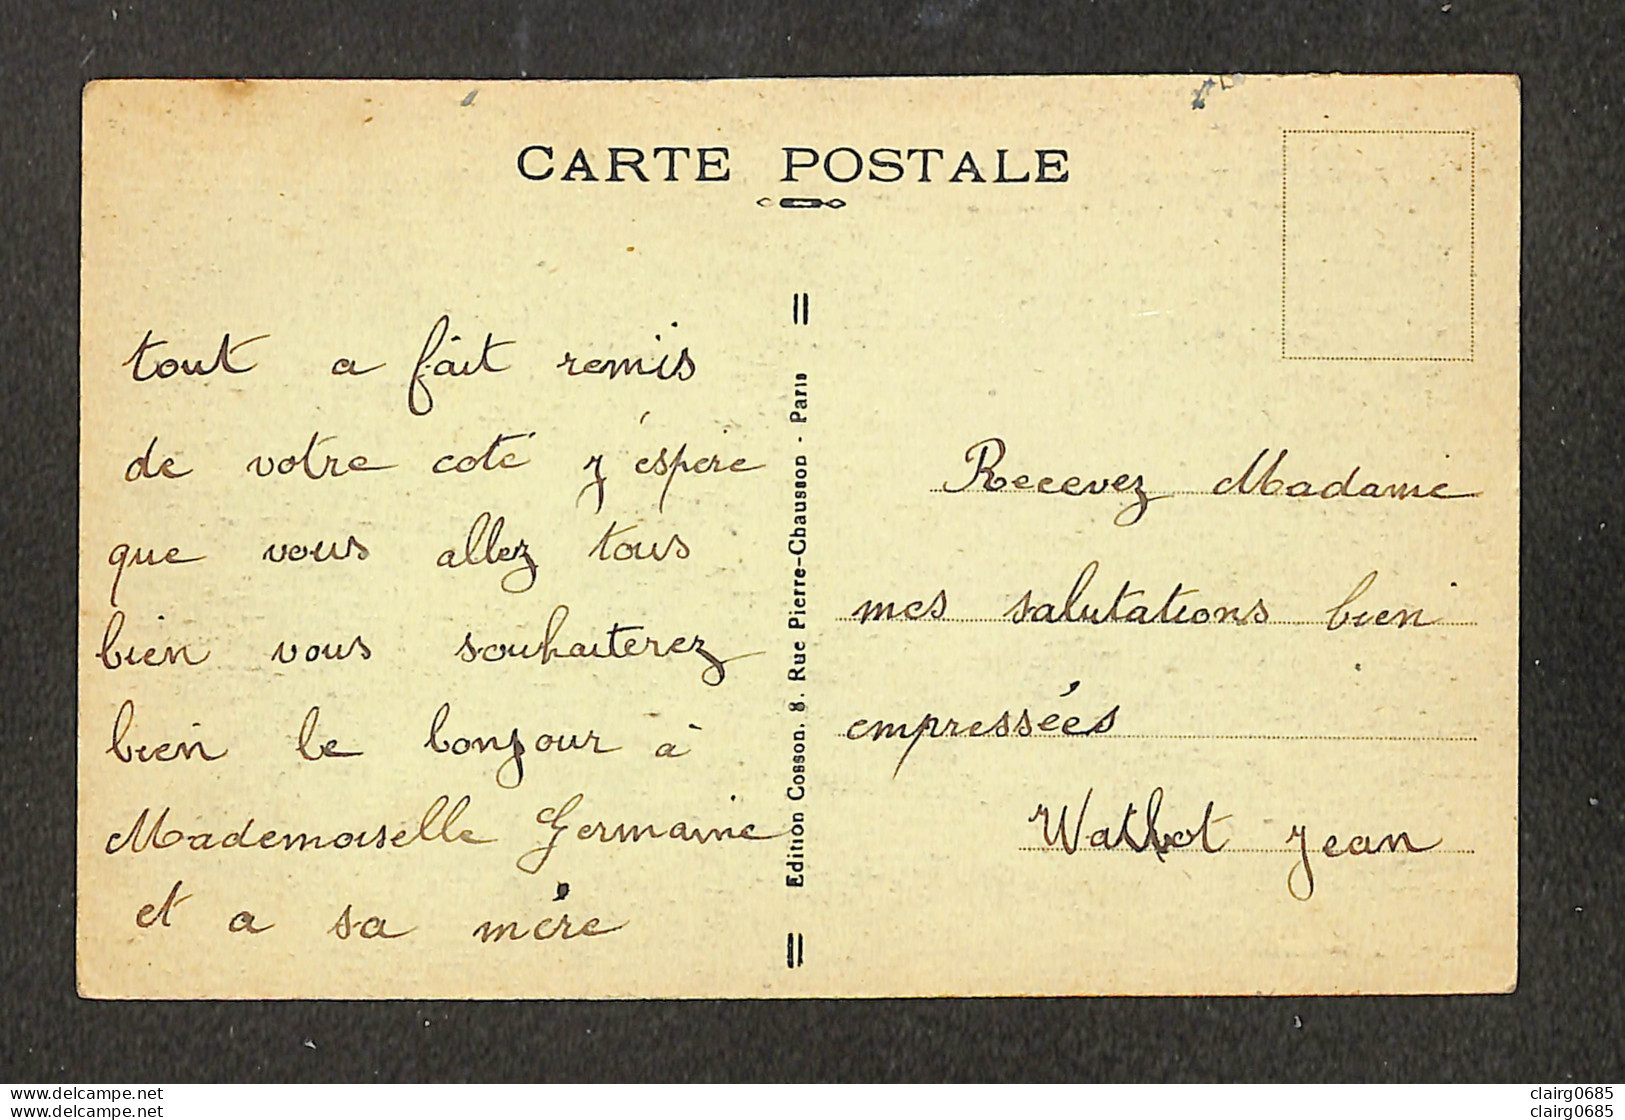 CARTE POSTALE
tout a fait remis
de votre coté j'éspére
que vous allez tous
bien vous souhaiterez
bien le bonjour à
Mademoiselle Germaine
et a sa mére
Edition Cosson. 8. Rue Pierre-Chausson - Paris
Recevez Madame
mes salutations bien
empressées
Watbot Jean
www.delcampe.net
www.delcampe.net
clairg0685
clairg0685